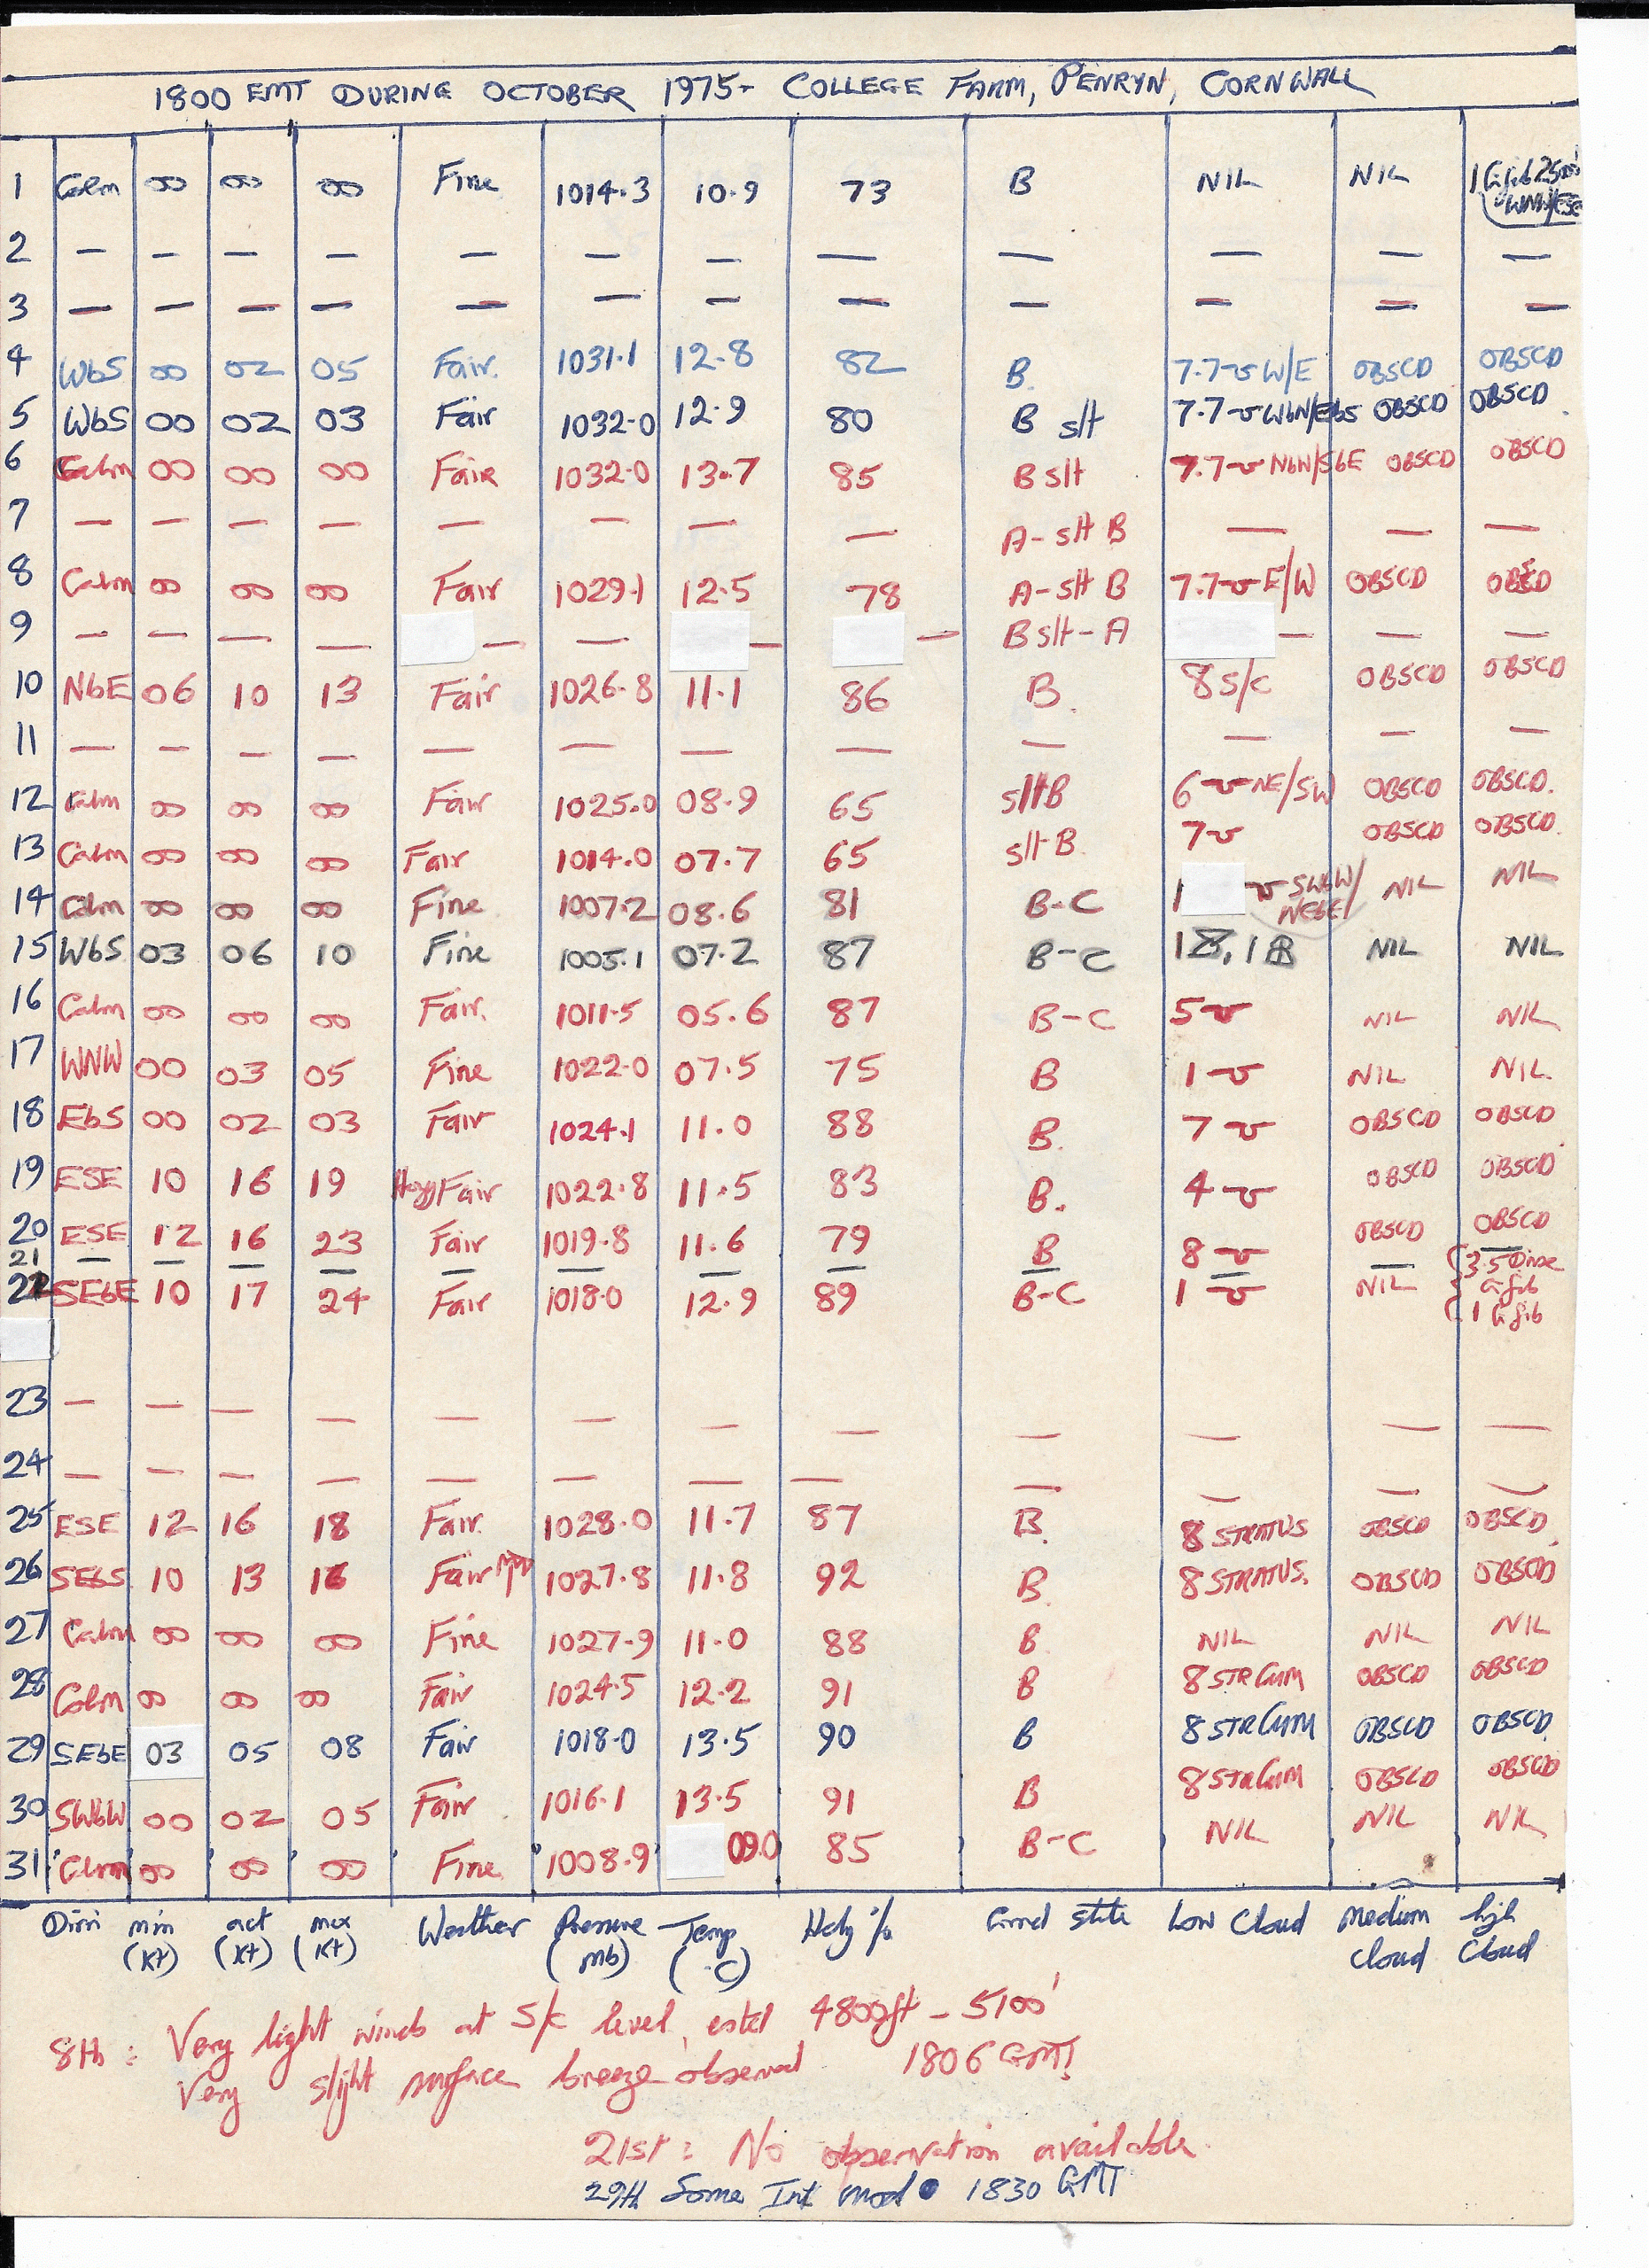 1800 GMT DURING OCTOBER 1975- COLLEGE FARM, PENRYN, CORNWALL
1 Calm 00 00 00 Fine 1014.3 10.9 73 B NIL NIL 1 Ci fib 25000' WNW/ESE
2 — — — — — — — — — — — —
3 — — — — — — — — — — — —
4 WbS 00 02 05 Fair. 1031.1 12.8 82 B. 7.7 W/E OBSCD OBSCD
5 WbS 00 02 03 Fair 1032.0 12.9 80 B slt 7.7 WbN/EbS OBSCD OBSCD
6 Calm 00 00 00 Fair 1032.0 13.7 85 B slt 7.7 NbW/SbE OBSCD OBSCD
7 — — — — — — — — A-slt B — — —
8 Calm 00 00 00 Fair 1029.1 12.5 78 A-slt B 7.7 E/W OBSCD OBSCD
9 — — — — — — — — B slt-A — — —
10 NbE 06 10 13 Fair 1026.8 11.1 86 B. 8 S/c OBSCD OBSCD
11 — — — — — — — — — — — —
12 Calm 00 00 00 Fair 1025.0 08.9 65 slt B 6 NE/SW OBSCD OBSCD.
13 Calm 00 00 00 Fair 1014.0 07.7 65 slt B 7 OBSCD OBSCD.
14 Calm 00 00 00 Fine 1007.2 08.6 81 B-C 1 SWbW/NEbE NIL NIL
15 WbS 03 06 10 Fine 1005.1 07.2 87 B-C NIL NIL
16 Calm 00 00 00 Fair. 1011.5 05.6 87 B-C 5 NIL NIL
17 WNW 00 03 05 Fine 1022.0 07.5 75 B 1 NIL NIL.
18 EbS 00 02 03 Fair 1024.1 11.0 88 B. 7 OBSCD OBSCD
19 ESE 10 16 19 Hazy Fair 1022.8 11.5 83 B. 4 OBSCD OBSCD
20 ESE 12 16 23 Fair 1019.8 11.6 79 B 8 OBSCD OBSCD
21 — — — — — — — — — — — —
22 SEbE 10 17 24 Fair 1018.0 12.9 89 B-C 1 NIL 3.5 Dense Ci fib 1 Ci fib
23 — — — — — — — — — — — —
24 — — — — — — — — — — — —
25 ESE 12 16 18 Fair. 1028.0 11.7 87 B. 8 STRATUS OBSCD OBSCD.
26 SEbS 10 13 16 Fair 1027.8 11.8 92 B. 8 STRATUS. OBSCD OBSCD
27 Calm 00 00 00 Fine 1027.9 11.0 88 B NIL NIL NIL
28 Calm 00 00 00 Fair 1024.5 12.2 91 B 8 STR CUM OBSCD OBSCD
29 SEbE 03 05 08 Fair 1018.0 13.5 90 B 8 STR CUM OBSCD OBSCD.
30 SWbW 00 02 05 Fair 1016.1 13.5 91 B 8 STR CUM OBSCD OBSCD
31 Calm 00 00 00 Fine 1008.9 09.0 85 B-C NIL NIL NIL
Dirn min (kt) act (kt) max (kt) Weather Pressure (mb) Temp (°C) Hdy % Grnd state Low Cloud Medium cloud high cloud
8th: Very light winds at S/c level, estd 4800ft - 5100'
Very slight surface breeze observed 1806 GMT!
21st: No observation available.
29th Some Int mod ● 1830 GMT